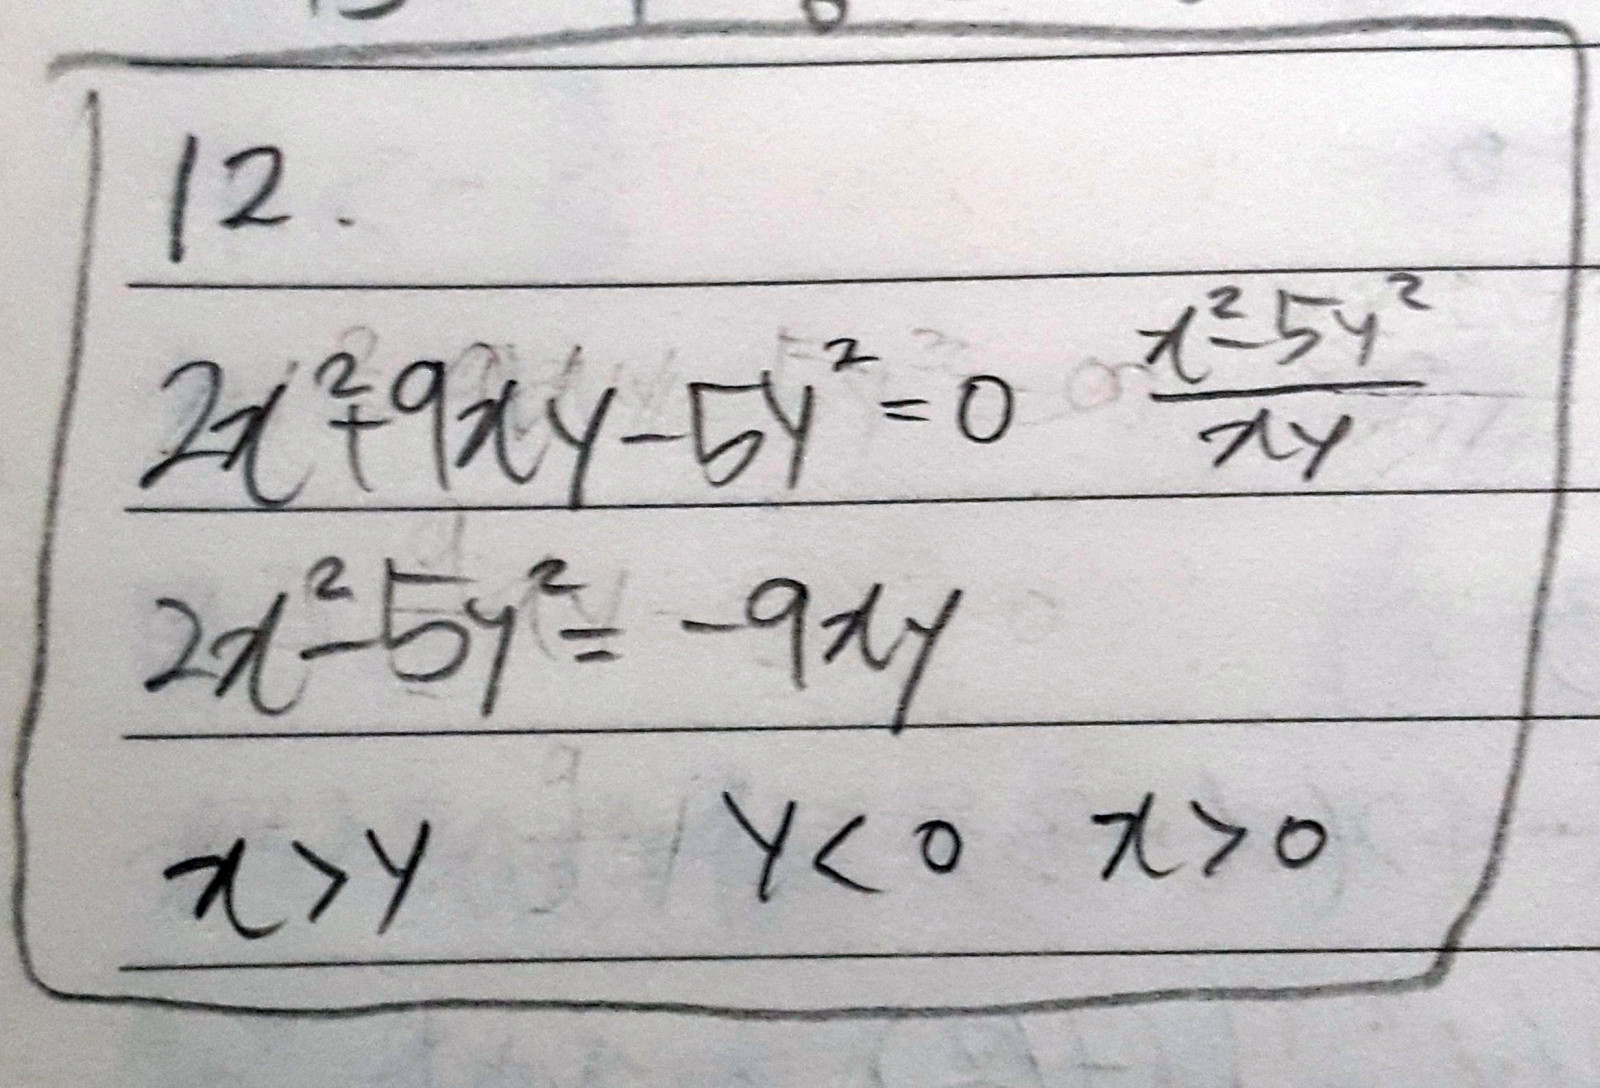 12.
2x²+9xy-5y²=0   x²-5y²/xy
2x²-5y²=-9xy
x>y   y<0   x>0